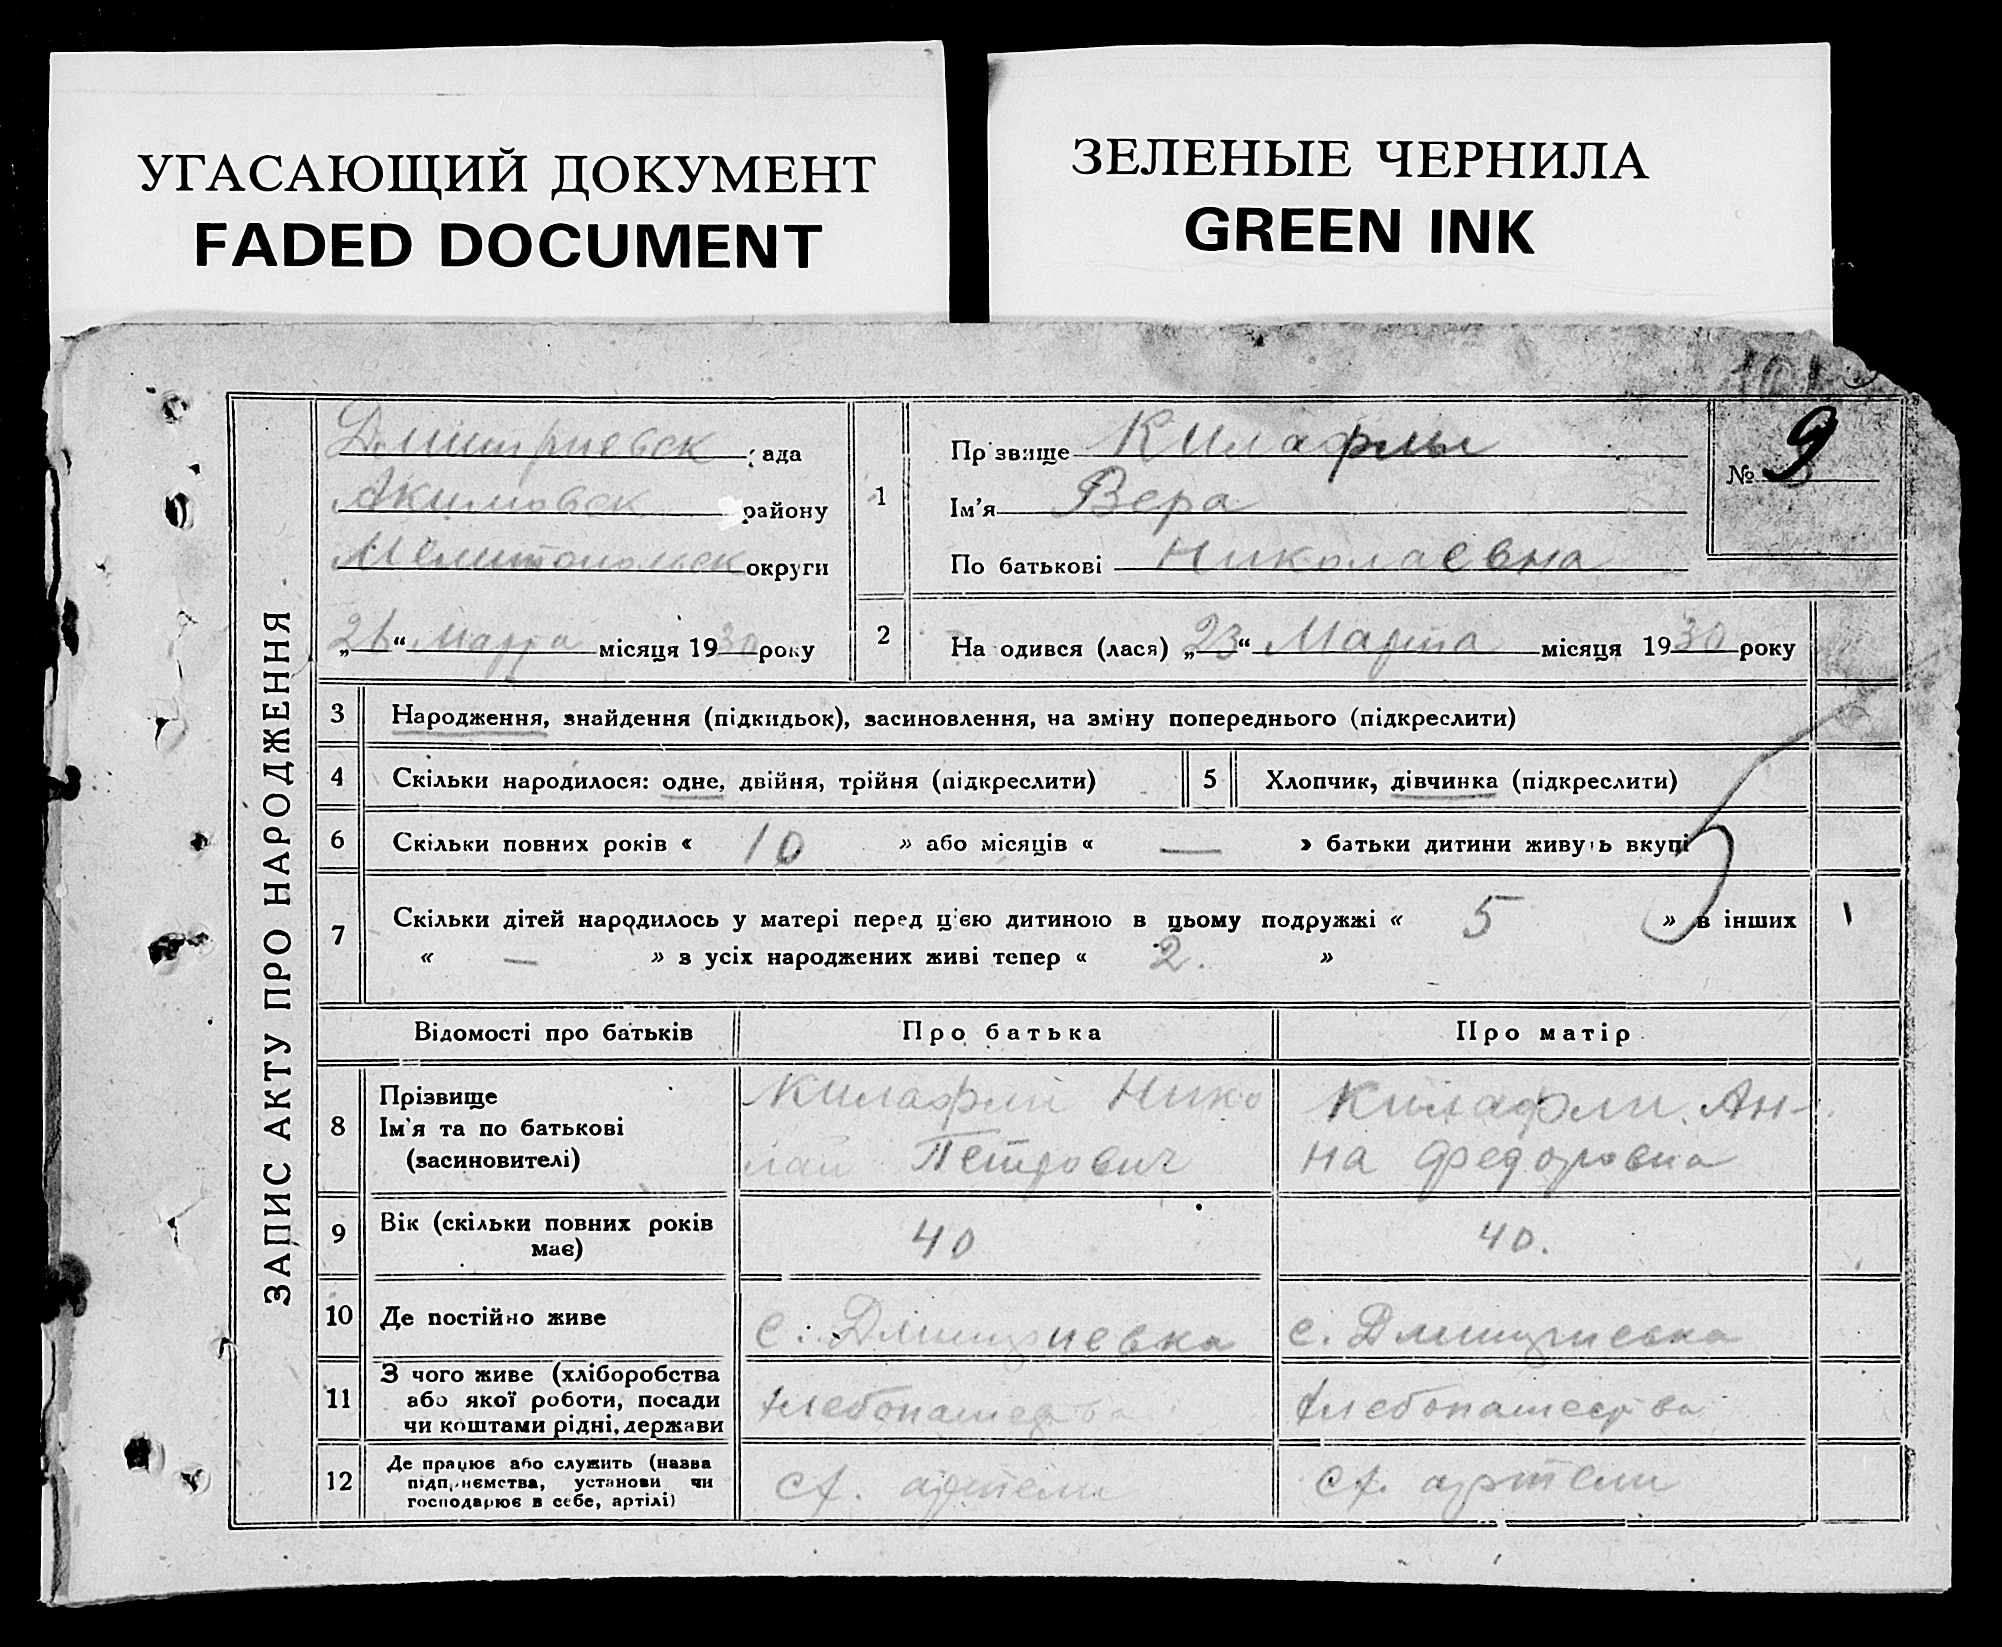 УГАСАЮЩИЙ ДОКУМЕНТ
FADED DOCUMENT
ЗЕЛЕНЫЕ ЧЕРНИЛА
GREEN INK
ЗАПИС АКТУ ПРО НАРОДЖЕННЯ
Дмитриевск рада
Акимовск району
Мелитопольск округи
„26“ Марта місяця 1930 року
1
Прізвище Килафлы
Ім'я Вера
По батькові Николаевна
№ 9
2
Народився (лася) „23“ Марта місяця 1930 року
3 Народження, знайдення (підкидьок), засиновлення, на зміну попереднього (підкреслити)
4 Скільки народилося: одне, двійня, трійня (підкреслити) 5 Хлопчик, дівчинка (підкреслити)
6 Скільки повних років « 10 » або місяців « — » батьки дитини живуть вкупі
7 Скільки дітей народилось у матері перед цією дитиною в цьому подружжі « 5 » в інших
« — » з усіх народжених живі тепер « 2. »
Відомості про батьків Про батька Про матір
8 Прізвище
Ім'я та по батькові
(засиновителі)
Килафли Нико
лай Петрович
Килафли Ан-
на Федоровна
9 Вік (скільки повних років
має)
40
40.
10 Де постійно живе с. Дмитриевка с. Дмитриевка
11 З чого живе (хліборобства
або якої роботи, посади
чи коштами рідні, держави
хлебопашества
хлебопашества
12 Де працює або служить (назва
підприємства, установи чи
господарює в себе, артілі)
сх. артели
сх. артели